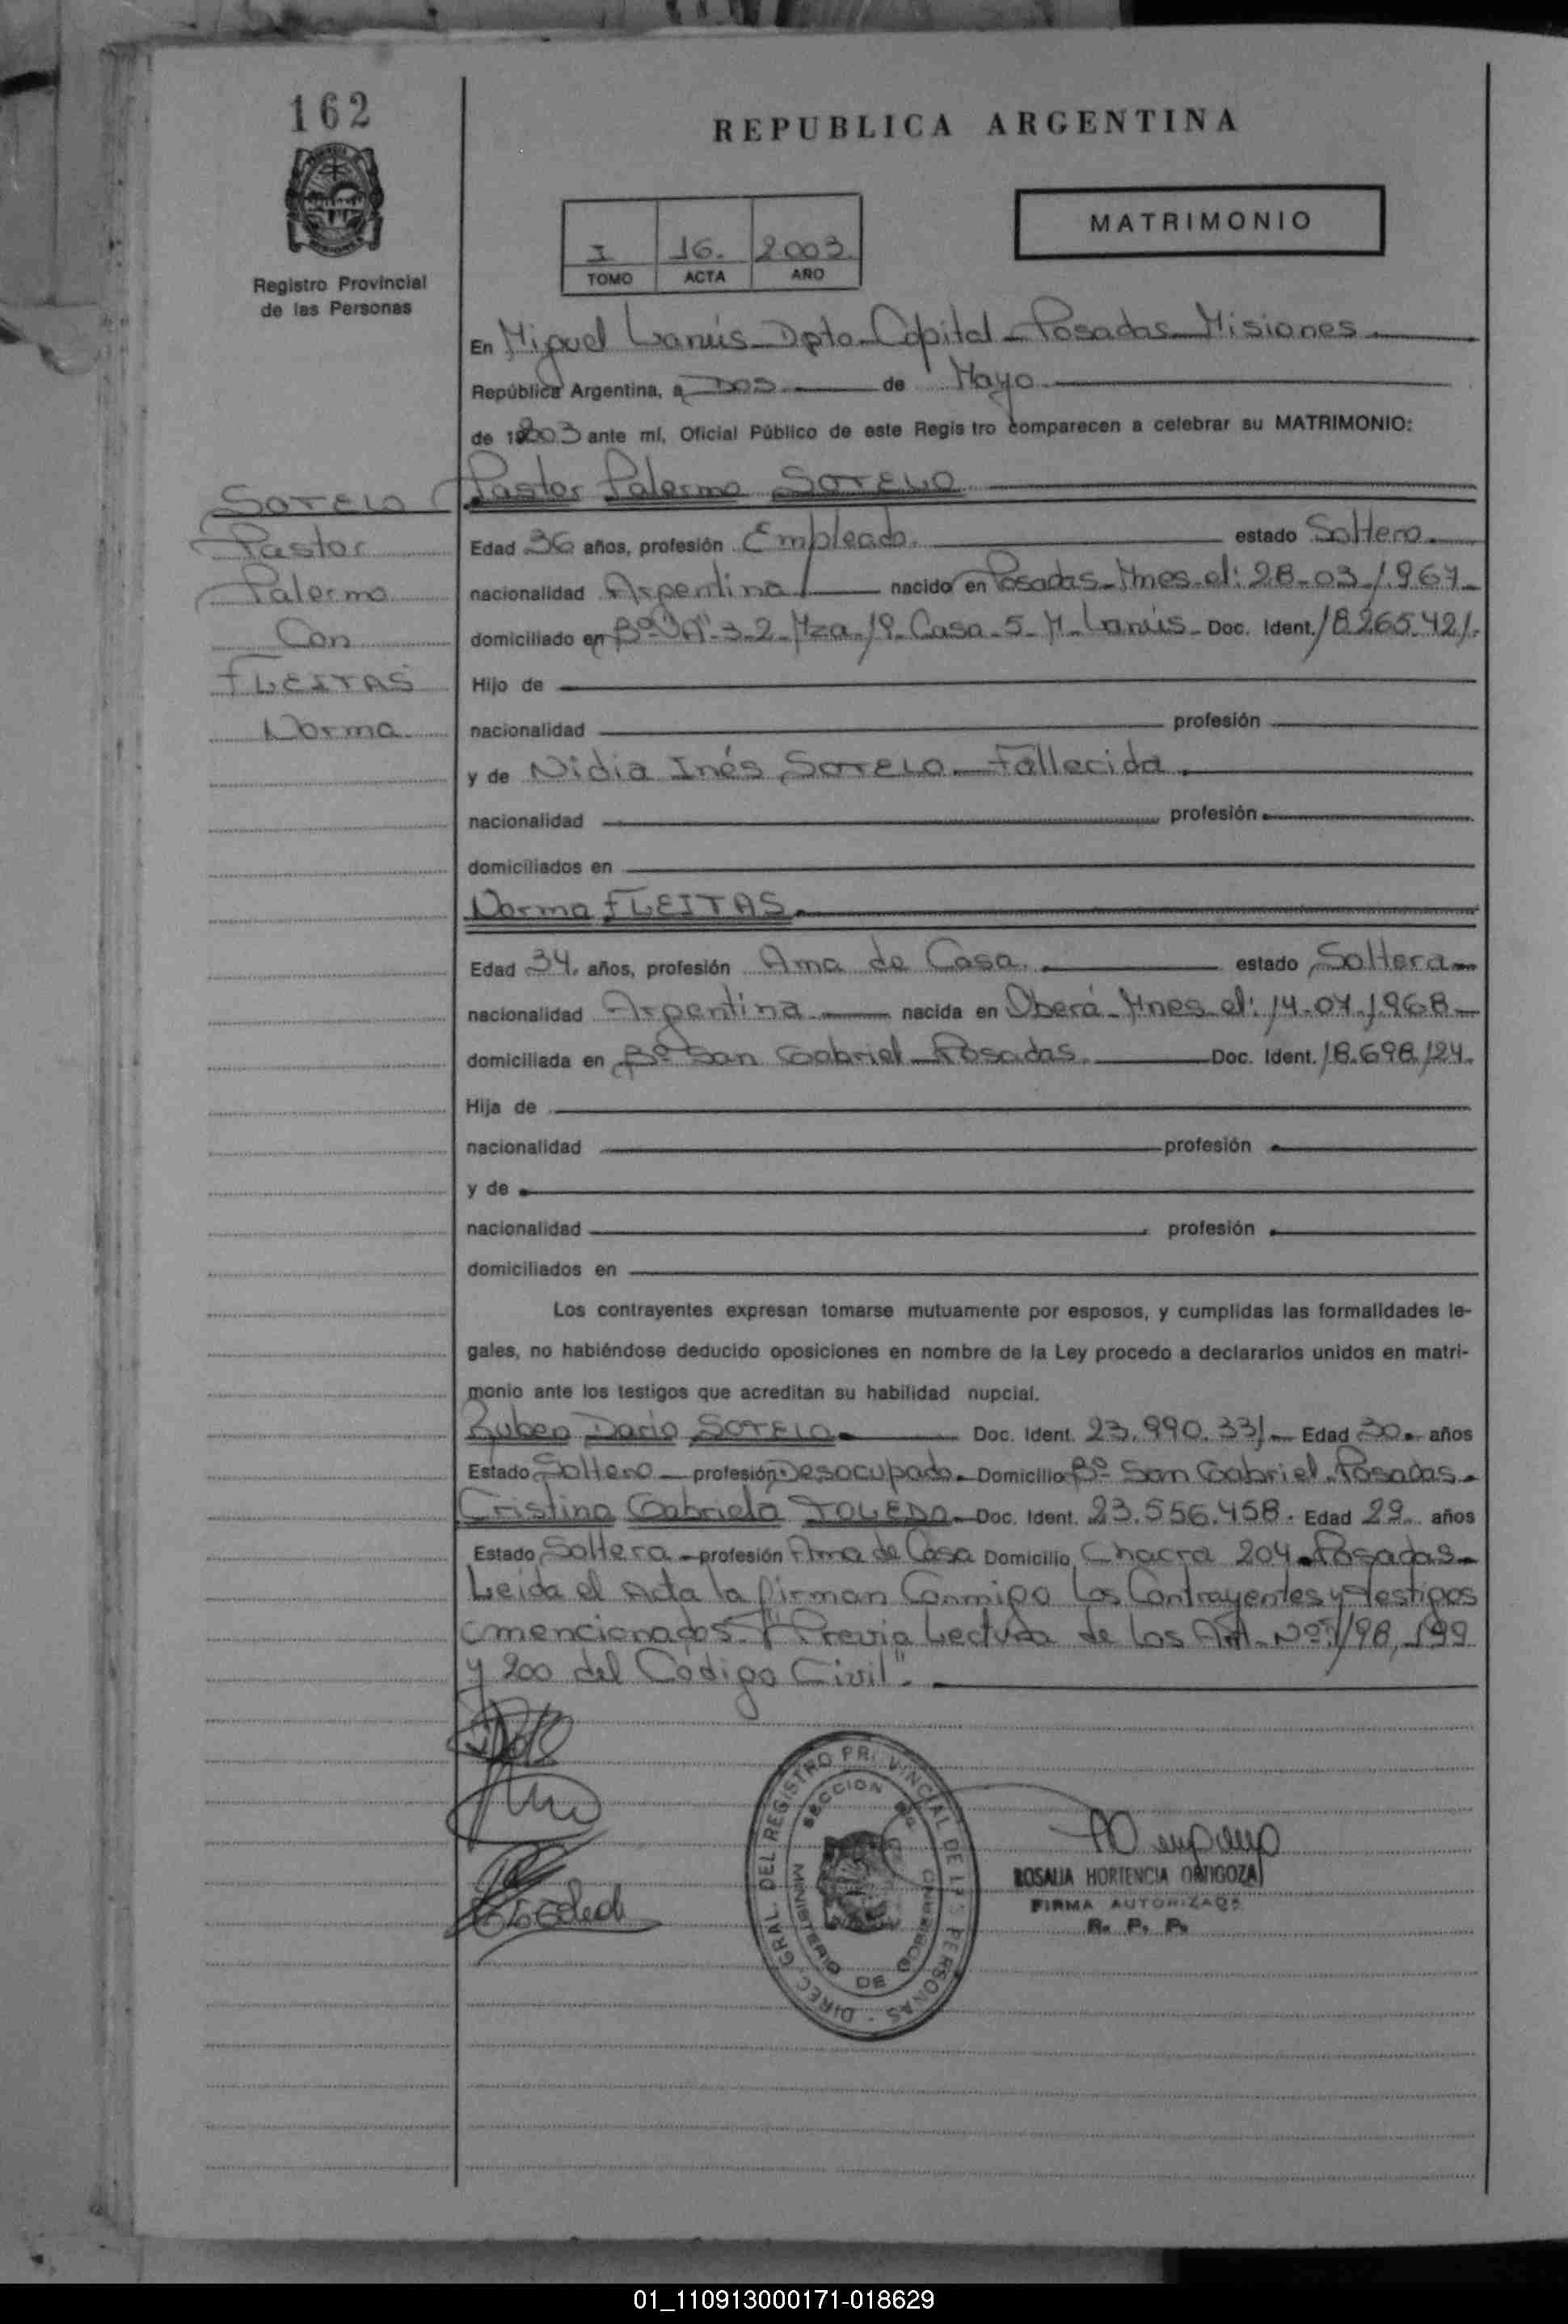 162
REPUBLICA ARGENTINA
MATRIMONIO
I 16. 2.003.
TOMO ACTA AÑO
Registro Provincial
de las Personas
En Miguel Lanús - Dpto - Capital - Posadas - Misiones
República Argentina, a Dos de Mayo
de 2003 ante mí, Oficial Público de este Regis tro comparecen a celebrar su MATRIMONIO:
SOTELO
Pastor
Palermo
Con
FLEITAS
Norma
Pastor Palermo SOTELO
Edad 36 años, profesión Empleado. estado Soltero.
nacionalidad Argentina nacido en Posadas - Mnes - el: 28-03-1.967-
domiciliado en Bº "A" - 3-2 - Mza - 19 - Casa - 5 - M - Lanús - Doc. Ident. 18.265.421.
Hijo de
nacionalidad profesión
y de Nidia Inés SOTELO - Fallecida.
nacionalidad profesión
domiciliados en
Norma FLEITAS.
Edad 34. años, profesión Ama de Casa. estado Soltera
nacionalidad Argentina nacida en Oberá - Mnes - el: 14-07-1.968-
domiciliada en Bº San Gabriel - Posadas Doc. Ident. 18.698.124.
Hija de
nacionalidad profesión
y de
nacionalidad profesión
domiciliados en
Los contrayentes expresan tomarse mutuamente por esposos, y cumplidas las formalidades le-
gales, no habiéndose deducido oposiciones en nombre de la Ley procedo a declararlos unidos en matri-
monio ante los testigos que acreditan su habilidad nupcial.
Ruben Dario SOTELO. Doc. Ident. 23.990.331 Edad 30. años
Estado Soltero profesión Desocupado. Domicilio Bº San Gabriel - Posadas.
Cristina Gabriela TOLEDO. Doc. Ident. 23.556.458. Edad 29. años
Estado Soltera profesión Ama de Casa Domicilio Chacra 204. Posadas
Leida el Acta la firman Conmigo los Contrayentes y testigos
mencionados "Previa Lectura de los Art. Nos 198, 199
y 200 del Código Civil".
DIREC. GRAL. DEL REGISTRO PROVINCIAL DE LAS PERSONAS
SECCION
MINISTERIO DE GOBIERNO
ROSALIA HORTENCIA ORTIGOZA
FIRMA AUTORIZADA
R. P. P.
01_110913000171-018629